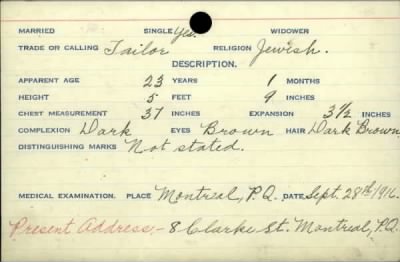 MARRIED SINGLE Yes. WIDOWER
TRADE OR CALLING Tailor RELIGION Jewish.
DESCRIPTION.
APPARENT AGE 23 YEARS 1 MONTHS
HEIGHT 5 FEET 9 INCHES
CHEST MEASUREMENT 37 INCHES EXPANSION 3½ INCHES
COMPLEXION Dark EYES Brown HAIR Dark Brown
DISTINGUISHING MARKS Not stated.
MEDICAL EXAMINATION. PLACE Montreal, P.Q. DATE Sept. 28th 1916.
Present Address:- 8 Clarke St. Montreal, P.Q.